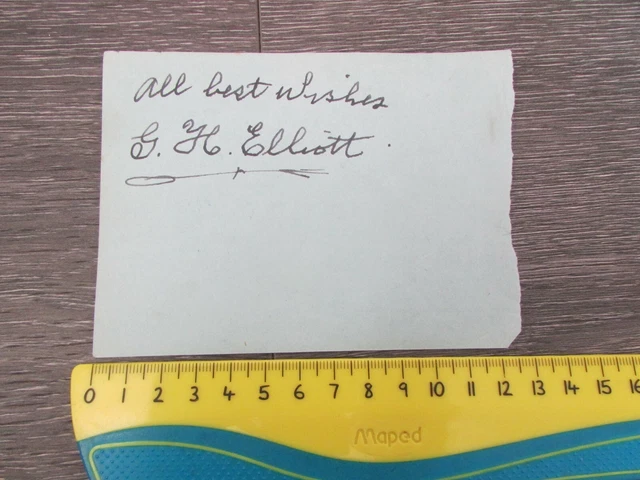 All best wishes
G. H. Elliott.
0 1 2 3 4 5 6 7 8 9 10 11 12 13 14 15 16
Maped